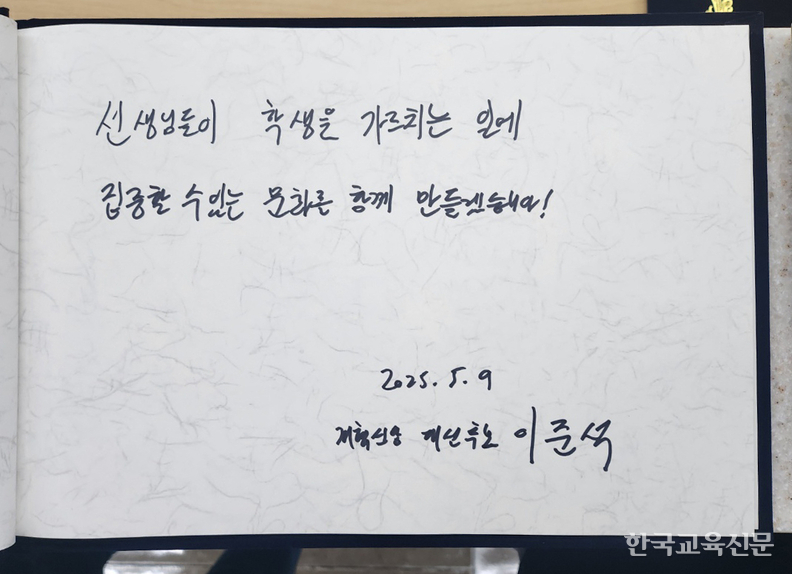 선생님들이 학생을 가르치는 일에
집중할 수 있는 문화를 함께 만들겠습니다!
2025. 5. 9
개혁신당 대선후보 이준석
한국교육신문